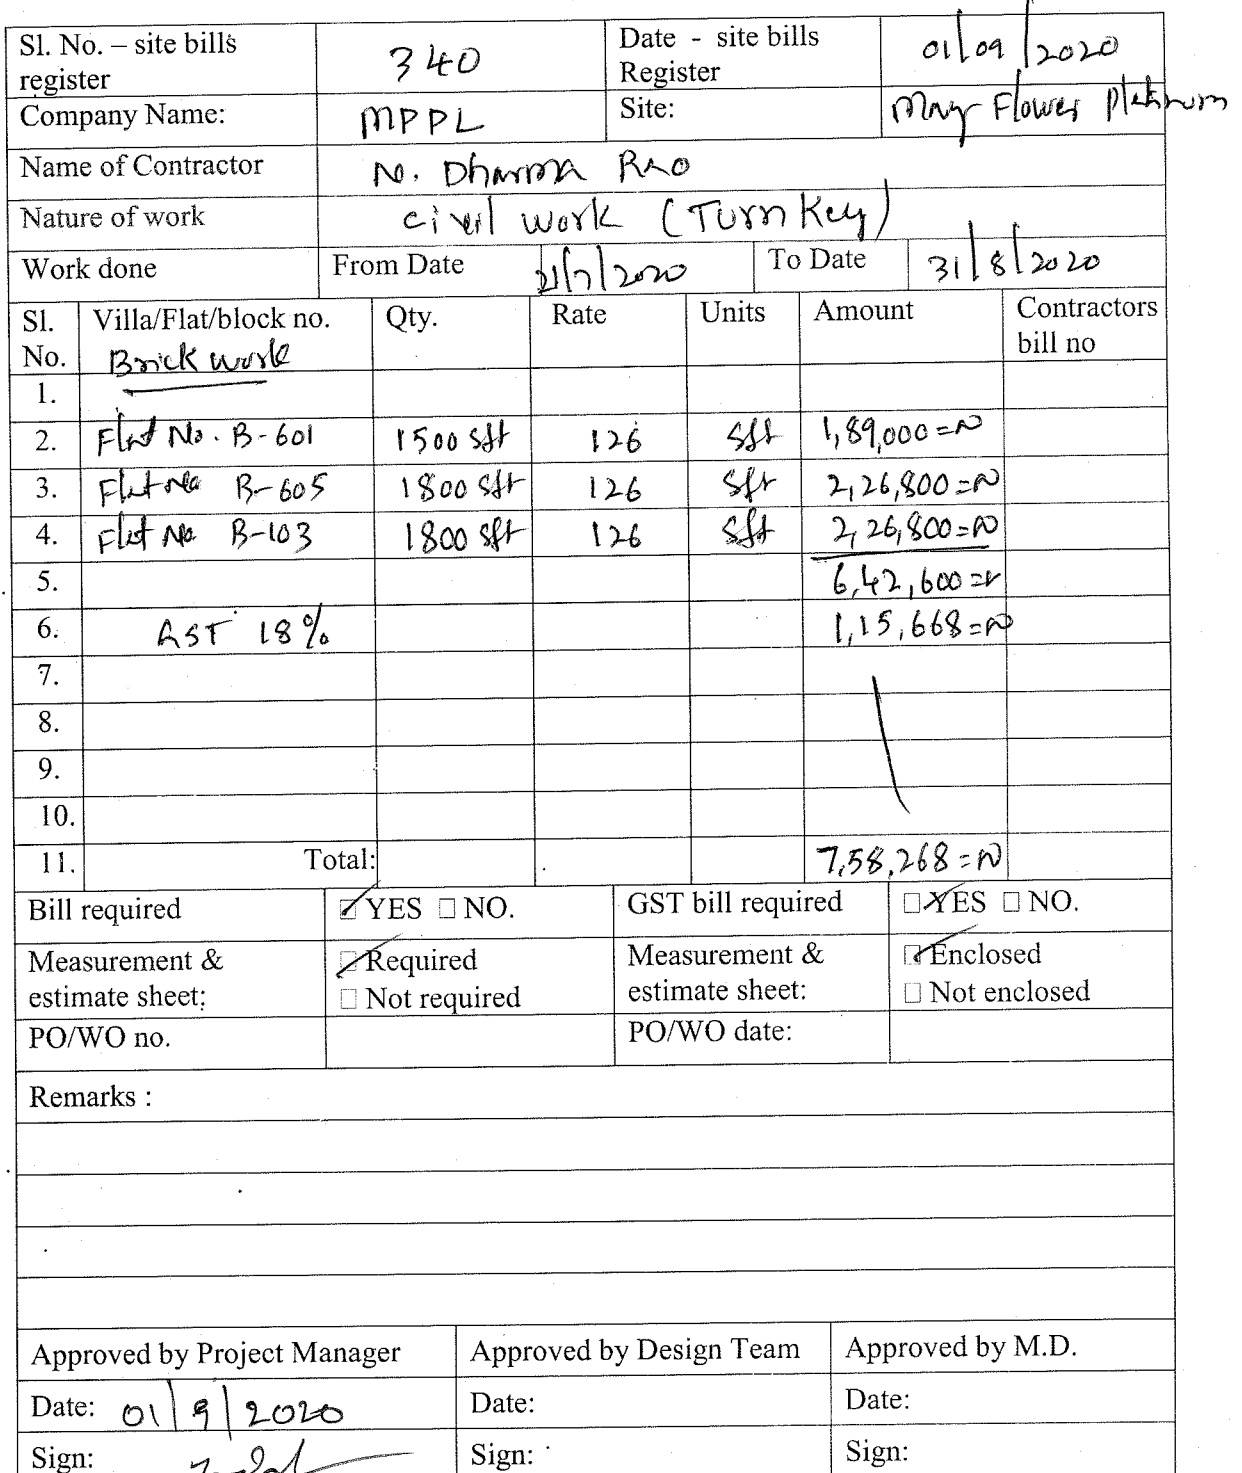 Sl. No. – site bills register 340 Date - site bills Register 01/09/2020
Company Name: MPPL Site: May Flower Platinum
Name of Contractor N. Dharma Rao
Nature of work Civil work (Turn Key)
Work done From Date 21/7/2020 To Date 31/8/2020
Sl. No. Villa/Flat/block no. Qty. Rate Units Amount Contractors bill no
Brick work
1.
2. Flat No. B-601 1500 sft 126 sft 1,89,000=
3. Flat No B-605 1800 sft 126 sft 2,26,800=
4. Flat No B-103 1800 sft 126 sft 2,26,800=
5. 6,42,600=
6. GST 18% 1,15,668=
7.
8.
9.
10.
11. Total: 7,58,268=
Bill required ☑ YES ☐ NO. GST bill required ☑ YES ☐ NO.
Measurement & estimate sheet: ☑ Required ☐ Not required Measurement & estimate sheet: ☑ Enclosed ☐ Not enclosed
PO/WO no. PO/WO date:
Remarks :
Approved by Project Manager Approved by Design Team Approved by M.D.
Date: 01/9/2020 Date: Date:
Sign: Sign: Sign: